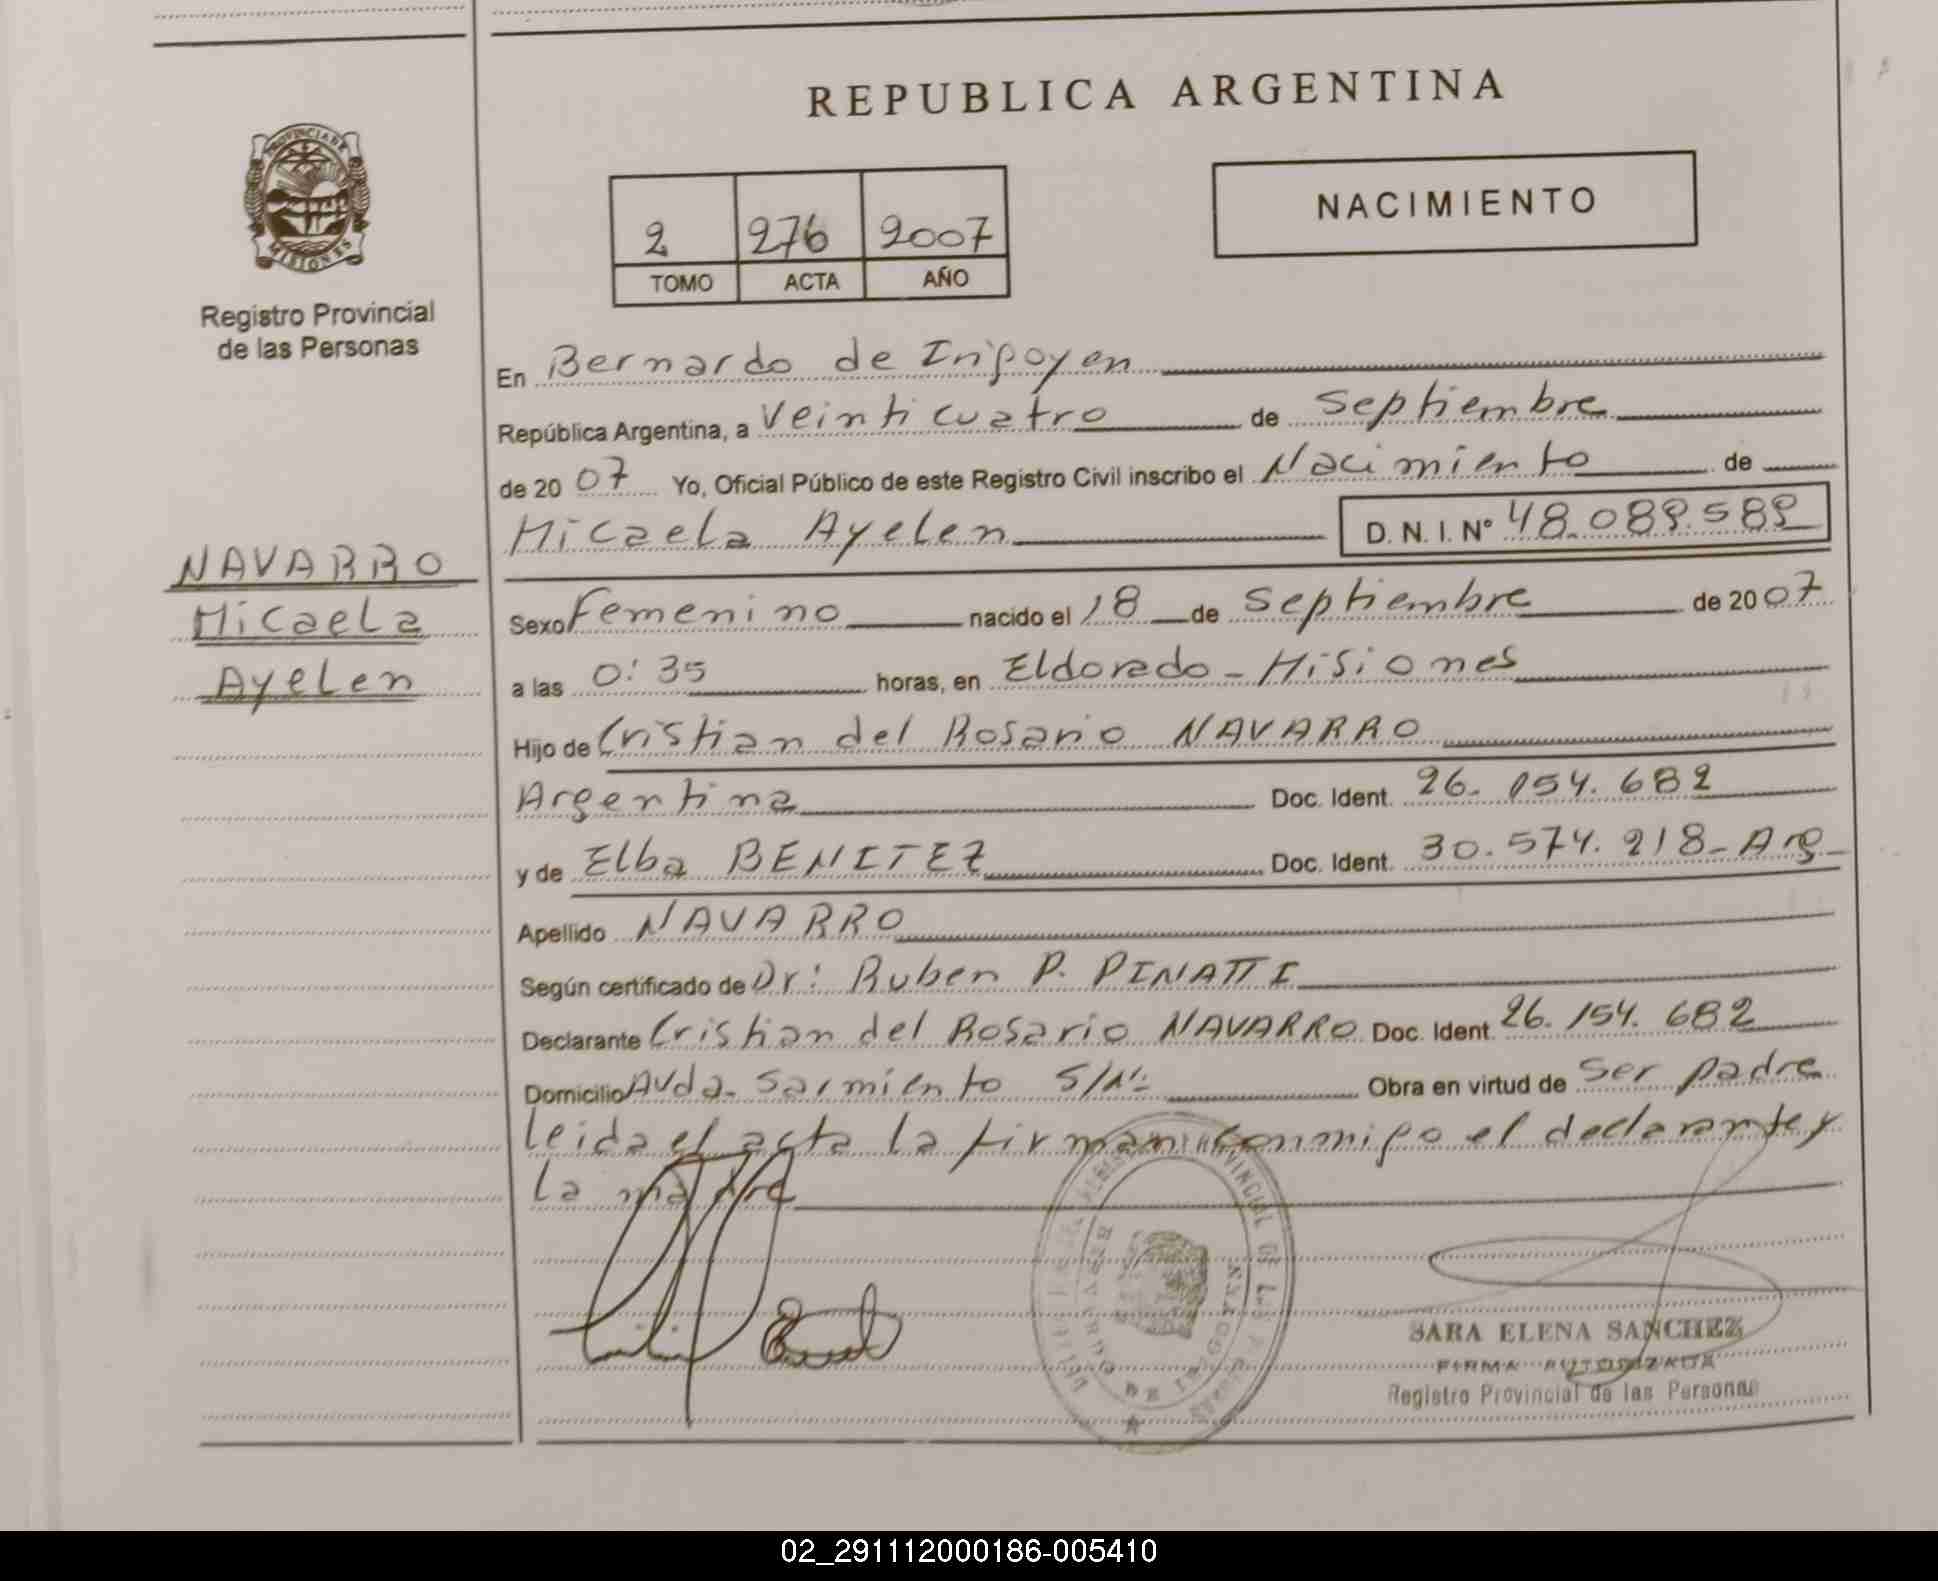 REPUBLICA ARGENTINA
PROVINCIA DE
MISIONES
Registro Provincial
de las Personas
2 276 2007
TOMO ACTA AÑO
NACIMIENTO
En Bernardo de Irigoyen
República Argentina, a Veinticuatro de Septiembre
de 2007 Yo, Oficial Público de este Registro Civil inscribo el Nacimiento de
Micaela Ayelen D. N. I. Nº 48.089.589
NAVARRO
Micaela
Ayelen
Sexo Femenino nacido el 18 de Septiembre de 2007
a las 0:35 horas, en Eldorado - Misiones
Hijo de Cristian del Rosario NAVARRO
Argentina Doc. Ident. 26.154.682
y de Elba BENITEZ Doc. Ident. 30.574.218 - Arg
Apellido NAVARRO
Según certificado de Dr: Ruben P. PINATTI
Declarante Cristian del Rosario NAVARRO Doc. Ident. 26.154.682
Domicilio Avda. Sarmiento S/Nº Obra en virtud de Ser padre
Leida el acta la firman conmigo el declarante y
La madre
SARA ELENA SANCHEZ
FIRMA AUTORIZADA
Registro Provincial de las Personas
02_291112000186-005410